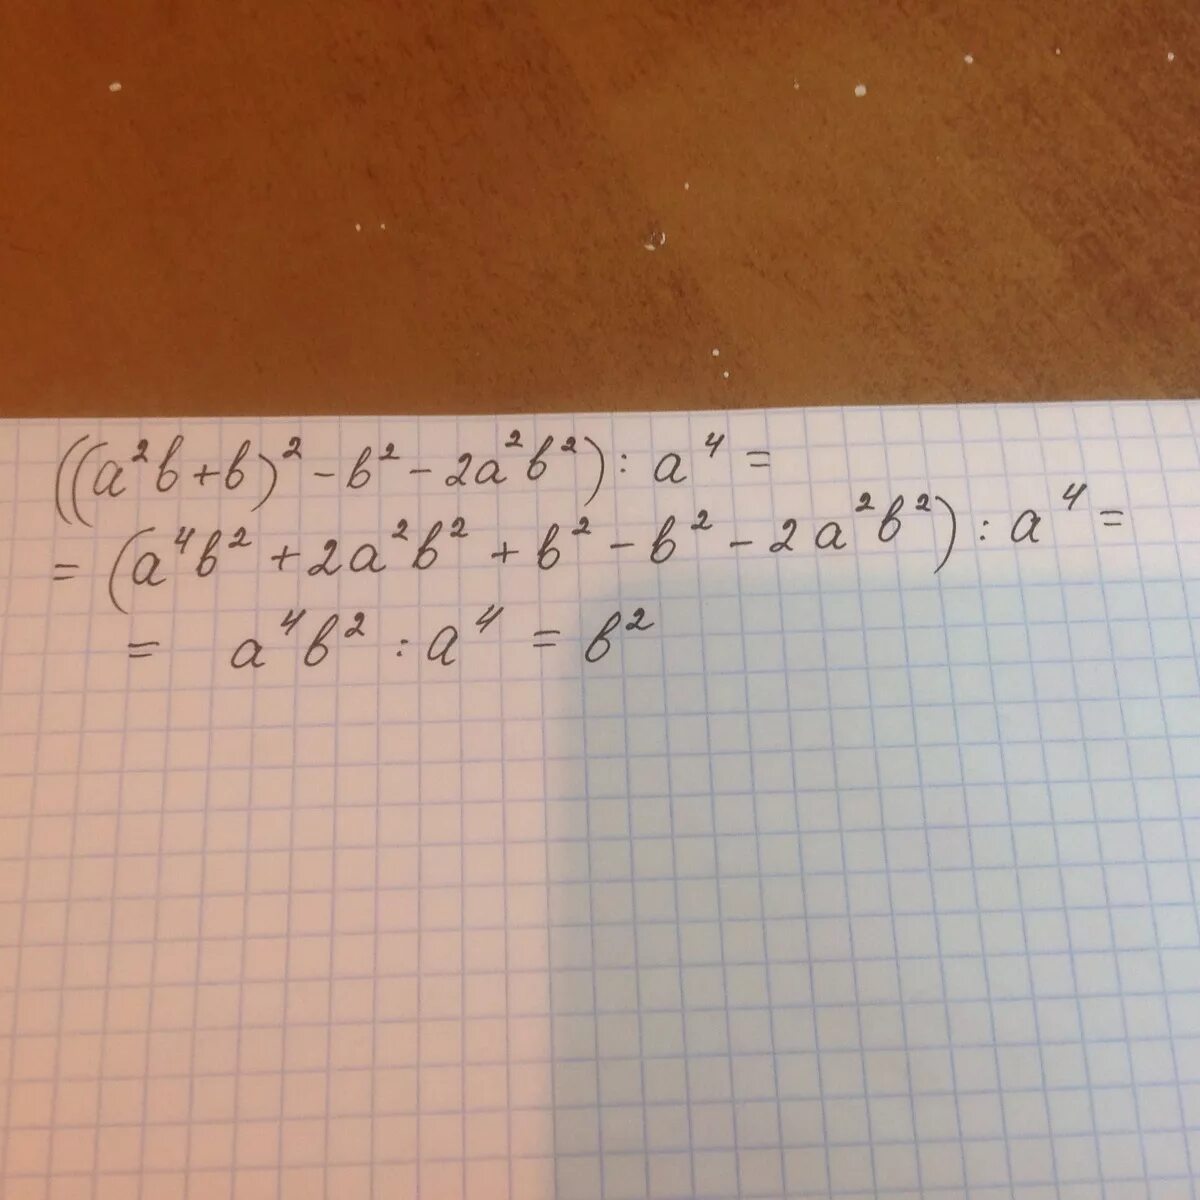 ((a²b+b)²-b²-2a²b²):a⁴=
=(a⁴b²+2a²b²+b²-b²-2a²b²):a⁴=
= a⁴b²:a⁴=b²